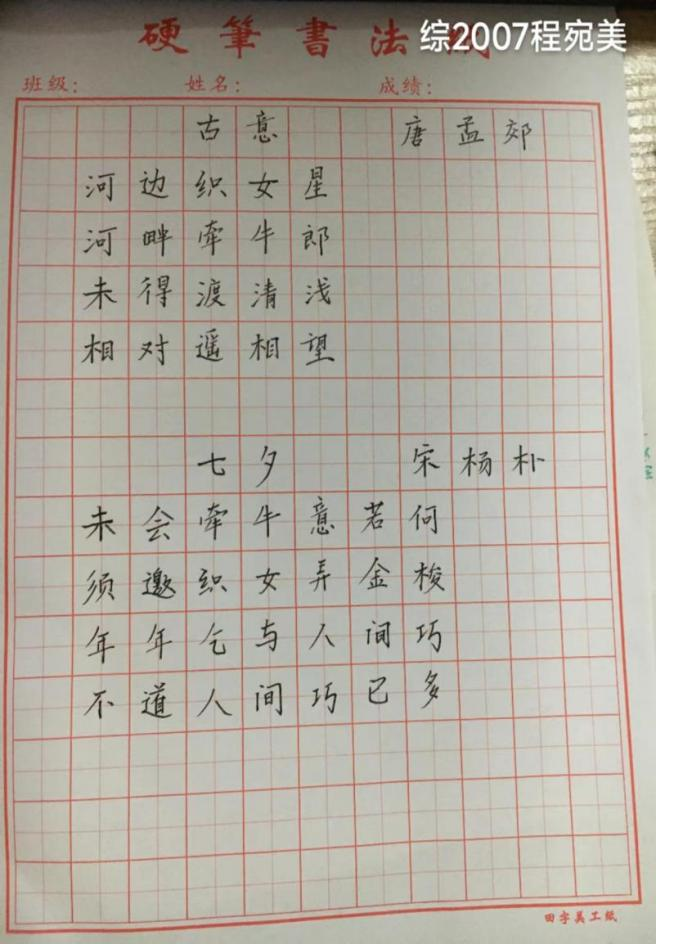 硬筆書法紙
综2007程宛美
班级： 姓名： 成绩：
古意 唐孟郊
河边织女星
河畔牵牛郎
未得渡清浅
相对遥相望
七夕 宋杨朴
未会牵牛意若何
须邀织女弄金梭
年年乞与人间巧
不道人间巧已多
田字美工纸